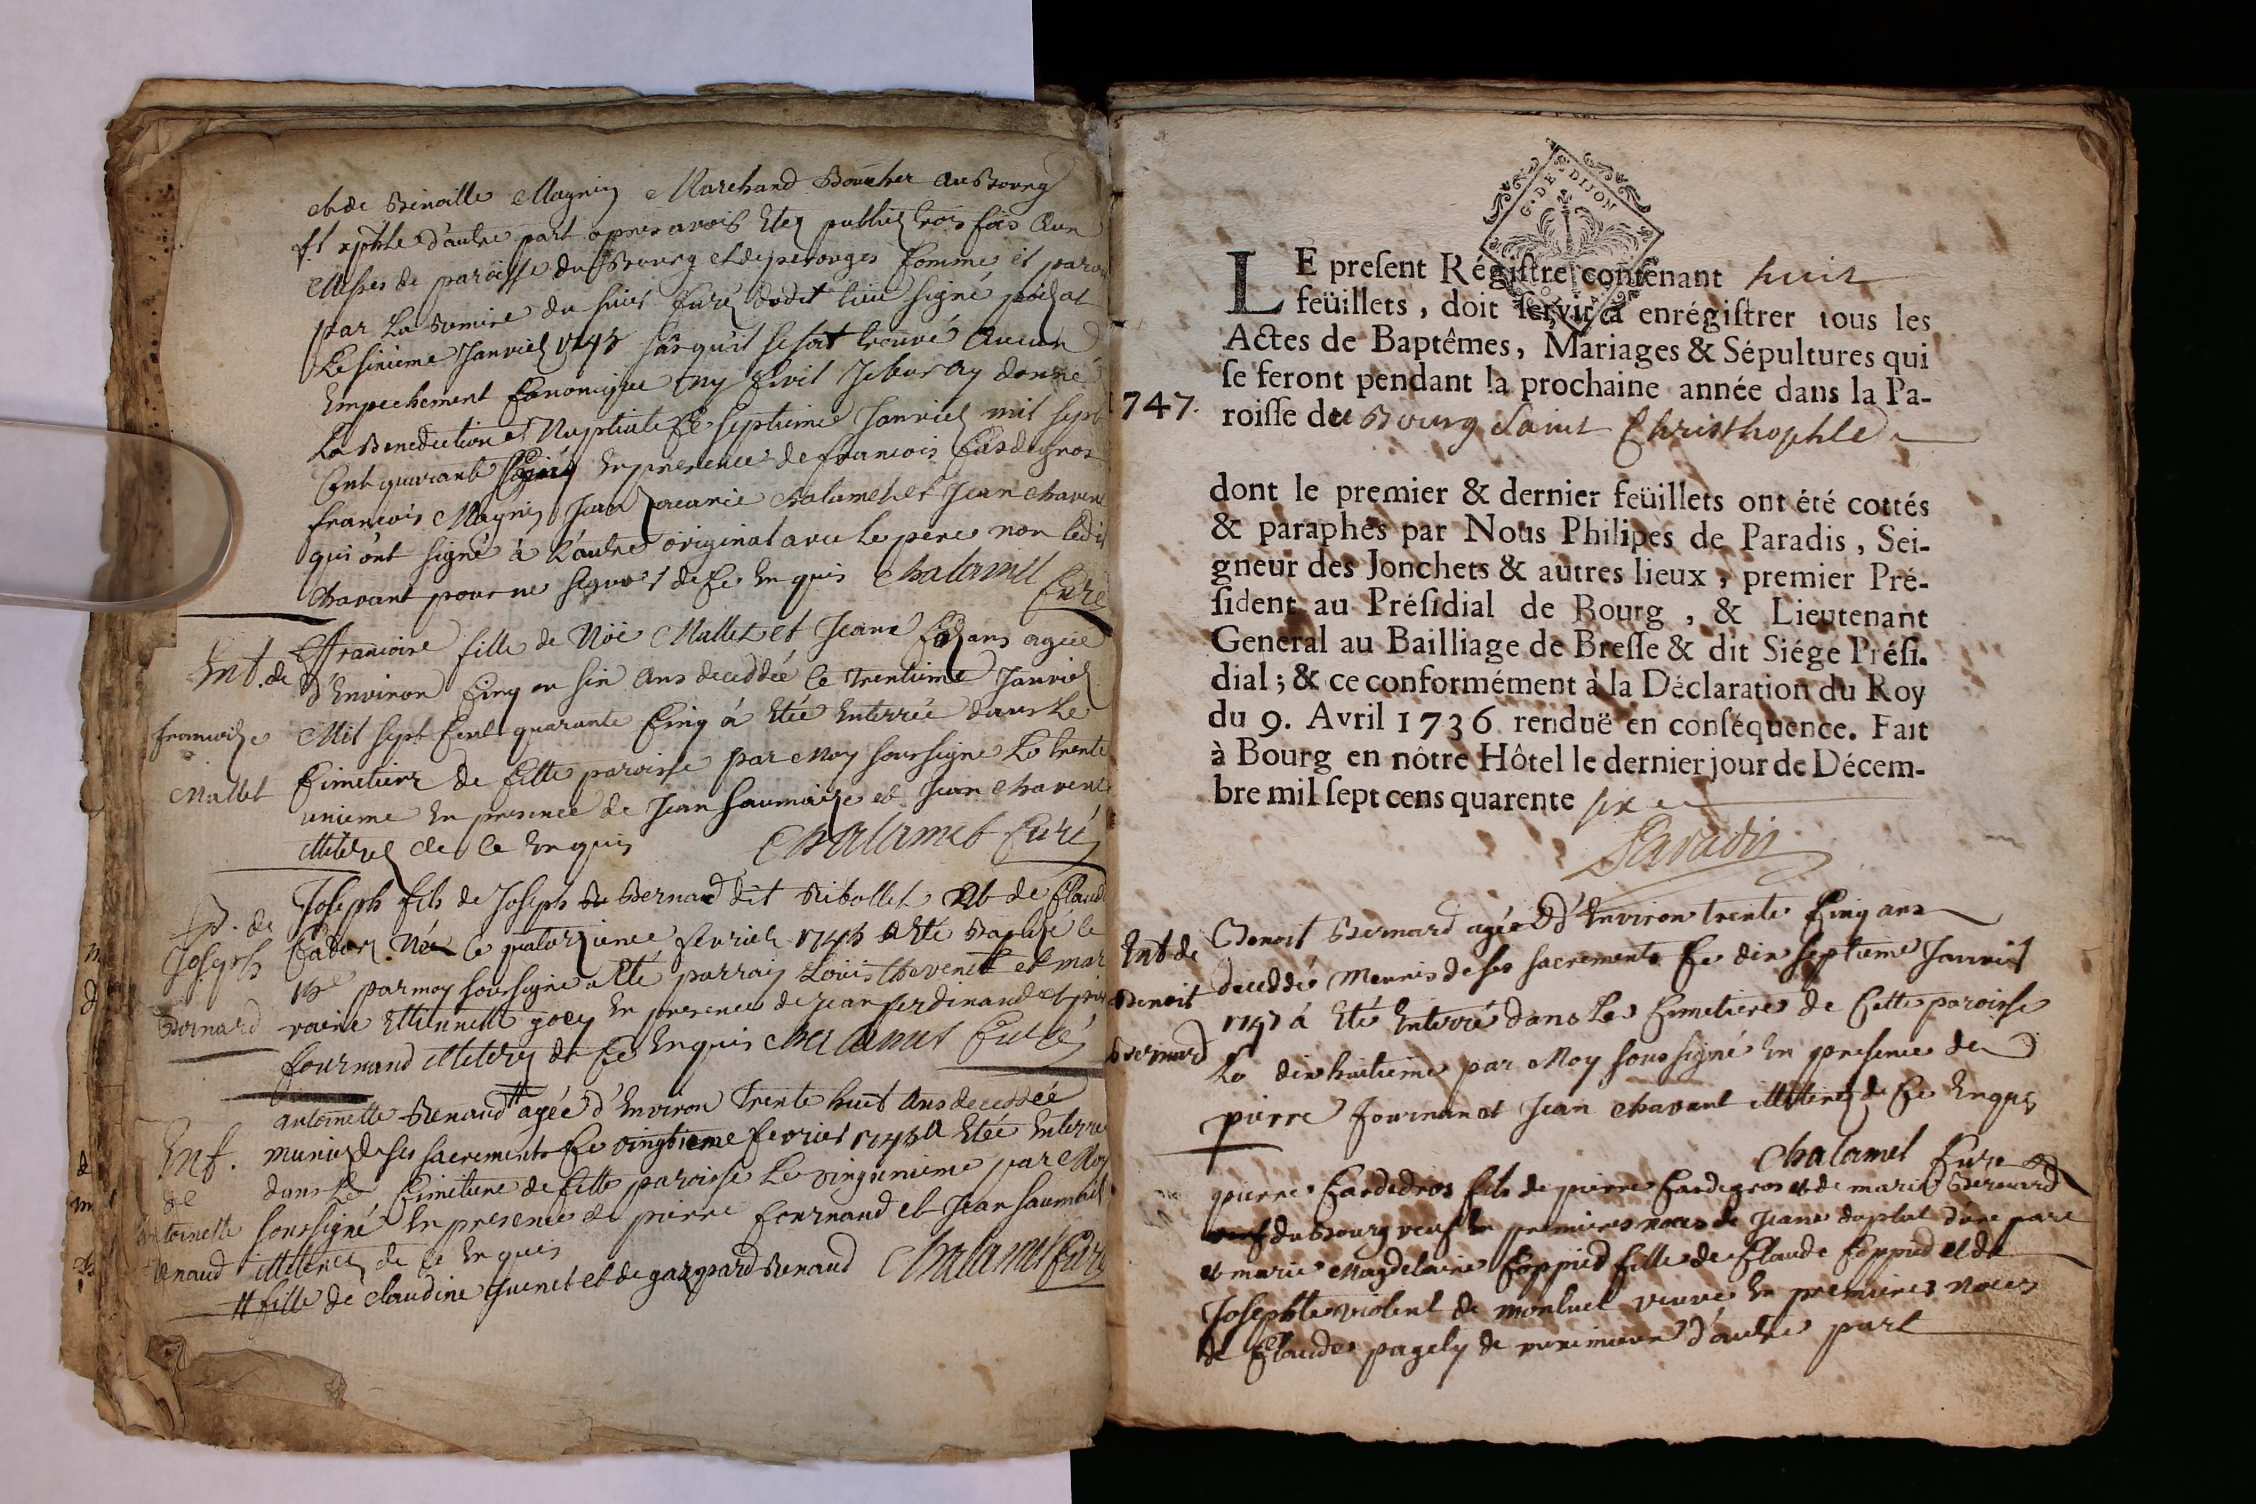 et de Benoitte Magnin Marchand Boucher au Bourg
st xphle d'autre part apres avois Etez publiez trois fois Aux
Messes de paroisse du Bourg et de perouges Comme il parois
par La Remise du sieur Curé dudit lieu signé
Le sixieme Janvier 1745 sans qu'il se soit trouvé Aucun
Empechement Canonique ny Civil Je leur Ay donné
La Benediction Nuptiale Ce septieme Janvier mil sept
Cent quarante Cinq En presence de francois Cardegros
francois Magnin Jean Zacarie Chalamel et Jean Chavent
qui ont signé à L'autre original avec le pere non ledit
Chavant pour ne sçavoir de Ce Enquis Chalamel
Curé
Ent. de
francoise
Mallet
francoise fille de Noë Mallet et Jeane agée
d'Environ Cinq ou six Ans decedée le trentieme Janvier
Mil sept Cent quarante Cinq à Etée Enterrée dans Le
Cimetiere de Cette paroisse par Moy soussigné Le trente
unieme En presence de Jean saumaize et Jean Chavent
illiterez de Ce Enquis Chalamel Curé
B. de
Joseph
Bernard
Joseph fils de Joseph Bernard dit Ribollet Et de Claud
Né le quatorzieme fevrier 1745 à Eté Baptizé le
15e par moy soussigné a Eté parrain Louis thevenet et mar
raine Ettiennette En presence de Jean ferdinand et
fournand illiterez de Ce Enquis Chalamel Curé
Ent.
de
antoinette
Renaud
antoinette Renaud # agée d'Environ Trente huit Ans decedée
munies de ses sacrements Ce vingtieme fevrier 1745 a Etée Enterré
dans Le Cimetiere de Cette paroisse Le vingunieme par Moy
soussigné En presence de pierre fournand et Jean saumaize
illiterez de Ce Enquis
# fille de Claudine et de gaspard Renaud Chalamel Curé
G. DE DIJON
LE present Régistre contenant huit
feüillets, doit servir à enrégistrer tous les
Actes de Baptêmes, Mariages & Sépultures qui
se feront pendant la prochaine année dans la Pa-
1747. roisse de Bourg Saint Christhophle
dont le premier & dernier feüillets ont été cottés
& paraphés par Nous Philipes de Paradis, Sei-
gneur des Jonchets & autres lieux, premier Pré-
sident au Présidial de Bourg, & Lieutenant
General au Bailliage de Bresse & dit Siége Prési-
dial; & ce conformément à la Déclaration du Roy
du 9. Avril 1736. renduë en conséquence. Fait
à Bourg en nôtre Hôtel le dernier jour de Décem-
bre mil sept cens quarente six
Paradis
Ent de
Benoit
Bernard
Benoit Bernard agée d'Environ trente Cinq ans
decedde Meunis de ses sacrements Ce dix septieme Janvier
1747 à Eté Enterré dans Le Cimetiere de Cette paroisse
Le dix huitieme par Moy soussigné En presence de
pierre fournand et Jean Chavant illiterez de Ce Enquis
Chalamel Curé
pierre Cardedros fils de pierre Cardegros et de marie Bernard
du Bourg veuf En premieres noces de Jeane duplat d'une part
et marie Magdelaine Coppied fille de Claude Coppied et de
Josephte violent de Monluel veuve En premieres noces
de Claude pagely de meximieux d'autre part